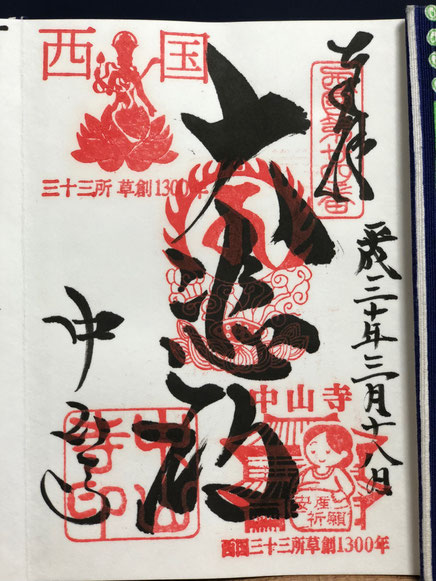 奉拝
西国第廿四番
平成三十年三月十八日
西国
三十三所 草創1300年
大悲殿
中山寺
安産
祈願
西国三十三所草創1300年
中山寺
中山寺印